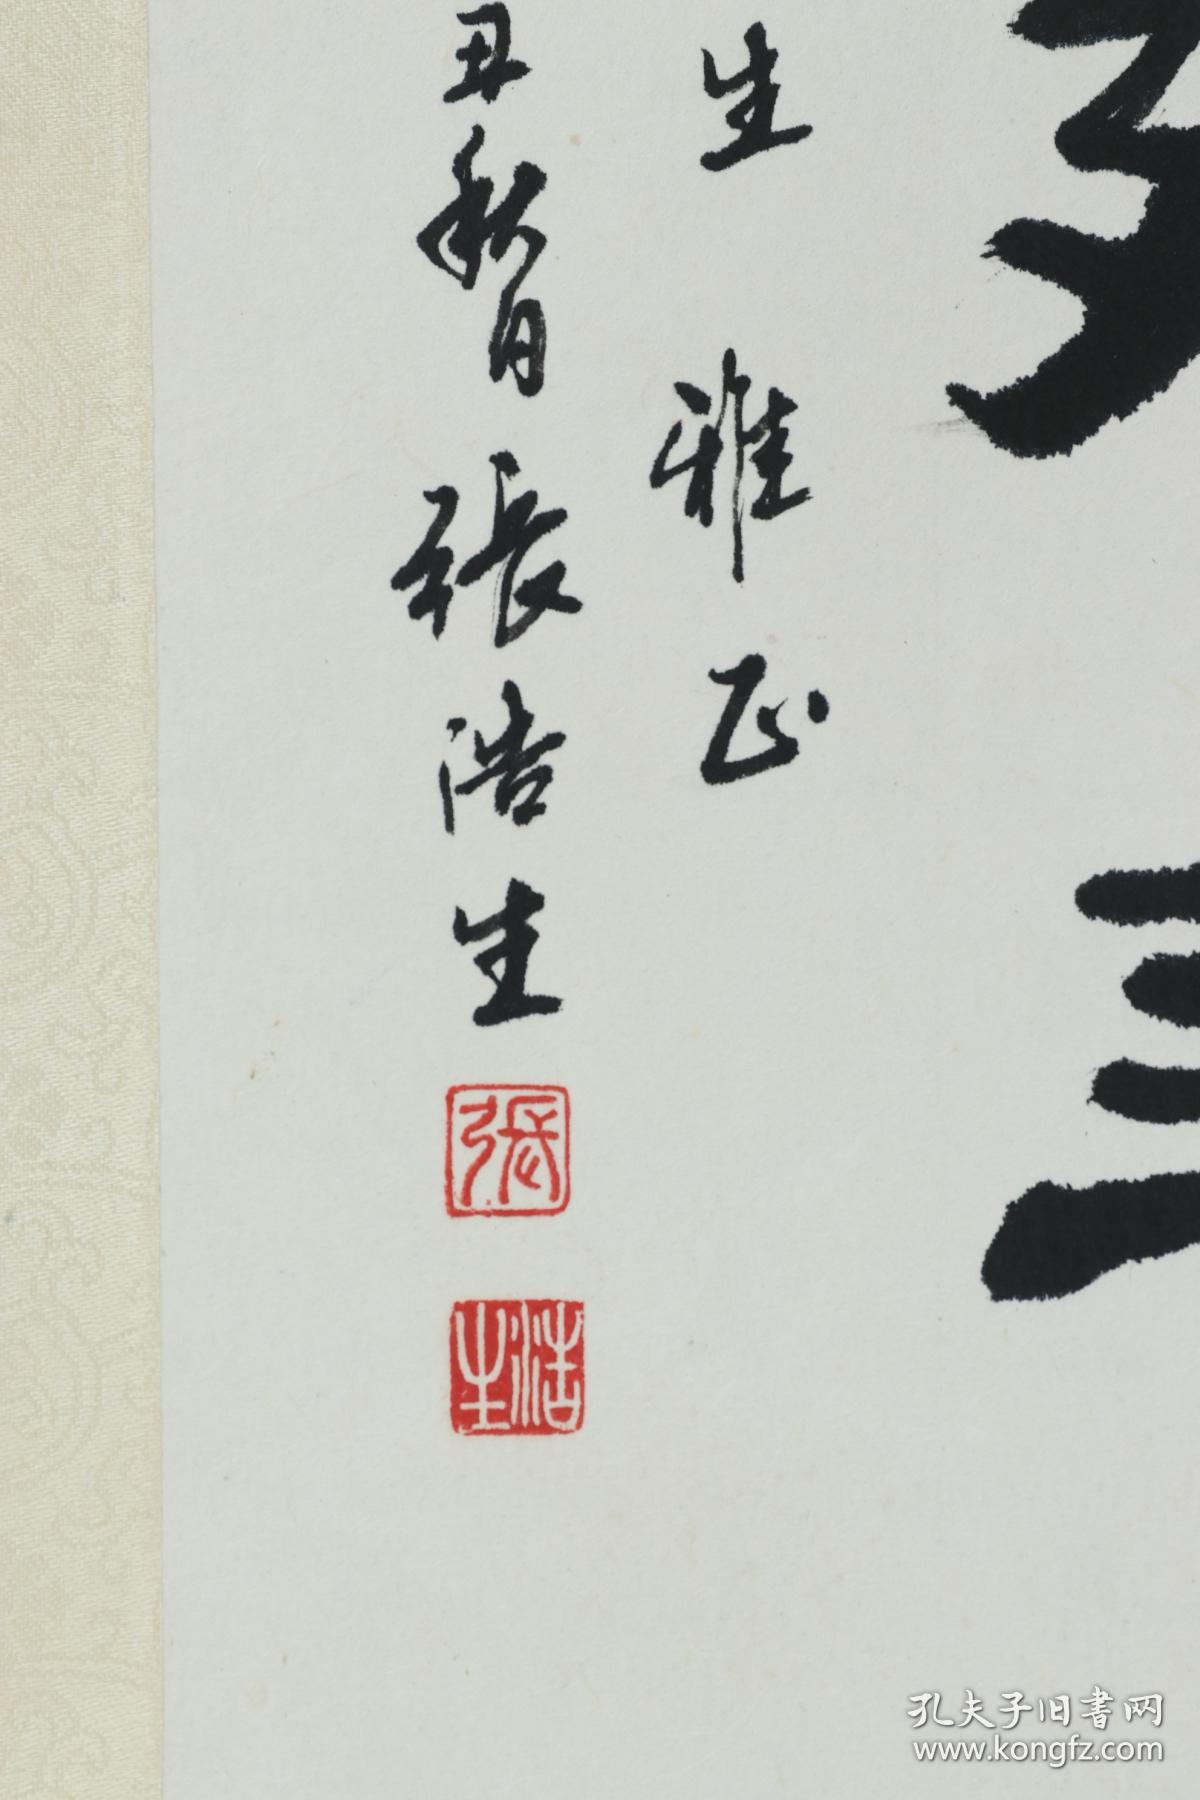 生雅正
丑秋月張浩生
張
浩生
孔夫子旧書网
www.kongfz.com